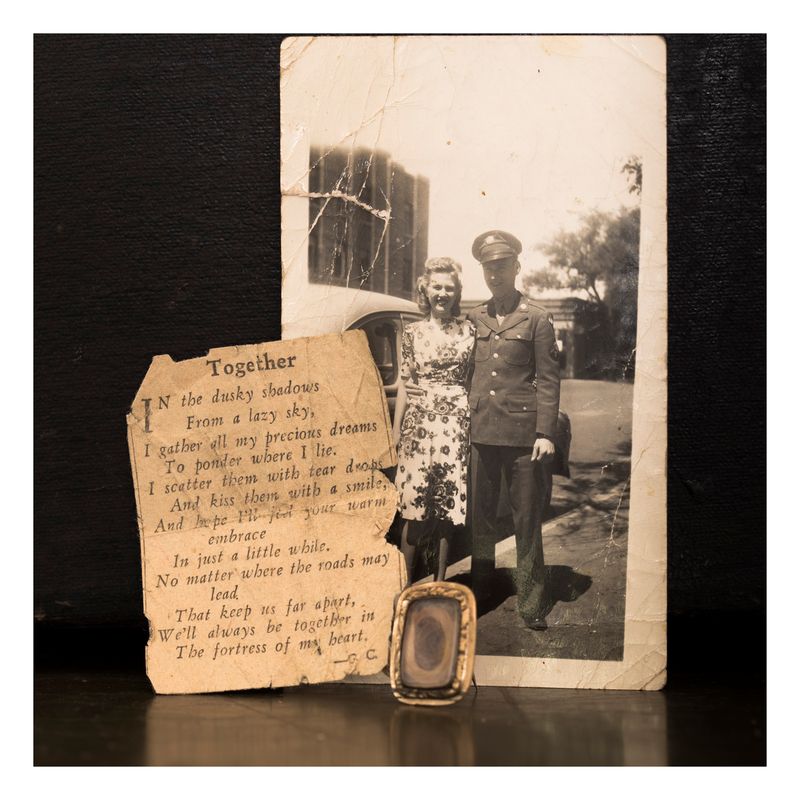 Together
IN the dusky shadows
From a lazy sky,
I gather all my precious dreams
To ponder where I lie.
I scatter them with tear drops
And kiss them with a smile,
And hope I'll feel your warm
embrace
In just a little while.
No matter where the roads may
lead
That keep us far apart,
We'll always be together in
The fortress of my heart.
—G. C.